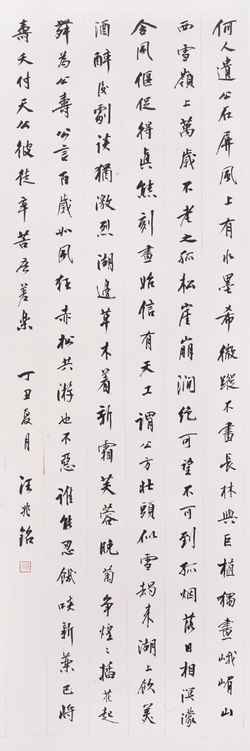 何人遺公石屏風上有水墨希微蹤不畫長林與巨植獨畫峨嵋山
西雪嶺上萬歲不老之孤松崖崩澗絕可望不可到孤烟落日相溟濛
含風偃蹇得真態刻畫始信有天工謂公方壯頭似雪朅来湖上飲美
酒醉後劇談猶激烈湖邊草木着新霜芙蓉晚菊争煌々插花起
舞為公壽公言百歲如風狂赤松共游也不惡誰能忍饑啖新藥已將
壽夭付天公彼徒辛苦吾差樂 丁丑夏月 汪兆銘